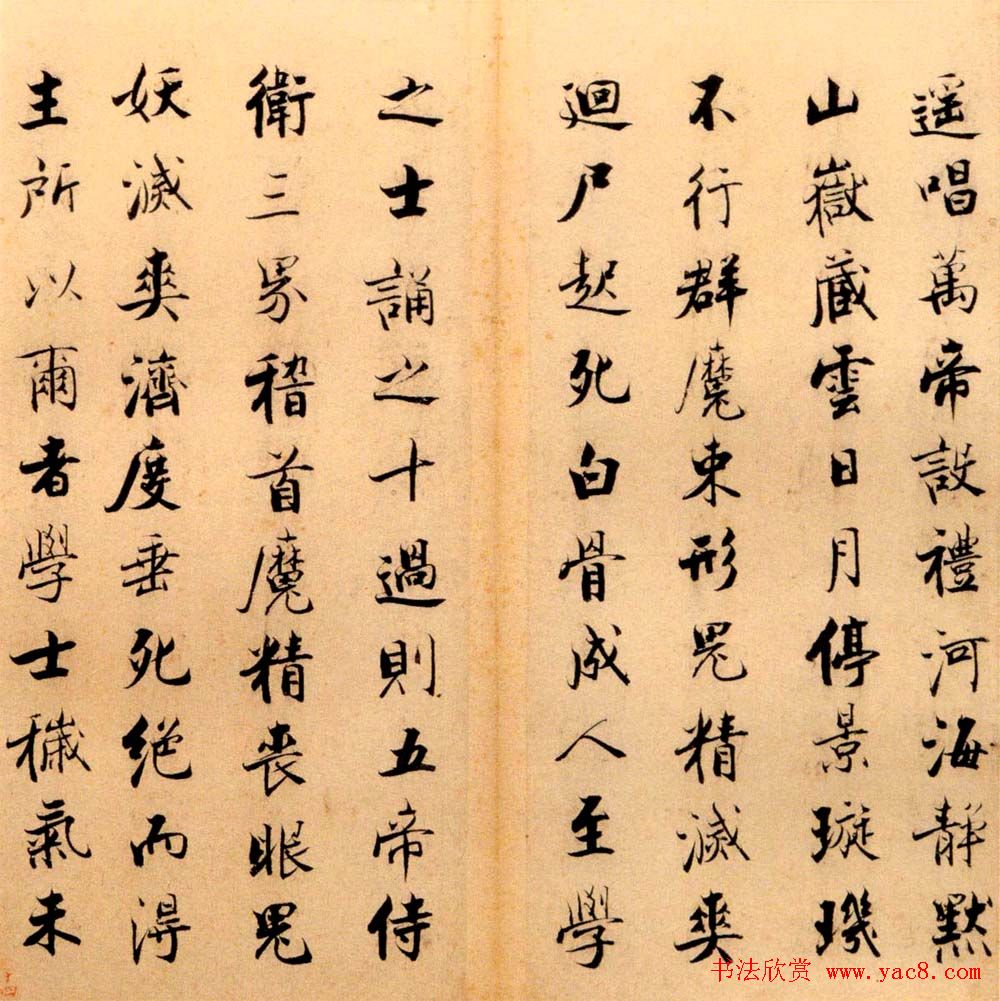 遥唱萬帝設禮河海靜默
山嶽藏雲日月停景璇璣
不行群魔束形鬼精滅爽
廻尸起死白骨成人至學
之士誦之十過則五帝侍
衛三界稽首魔精喪眼鬼
妖滅爽濟度垂死絕而得
主所以爾者學士穢氣未
十四
书法欣赏 www.yac8.com